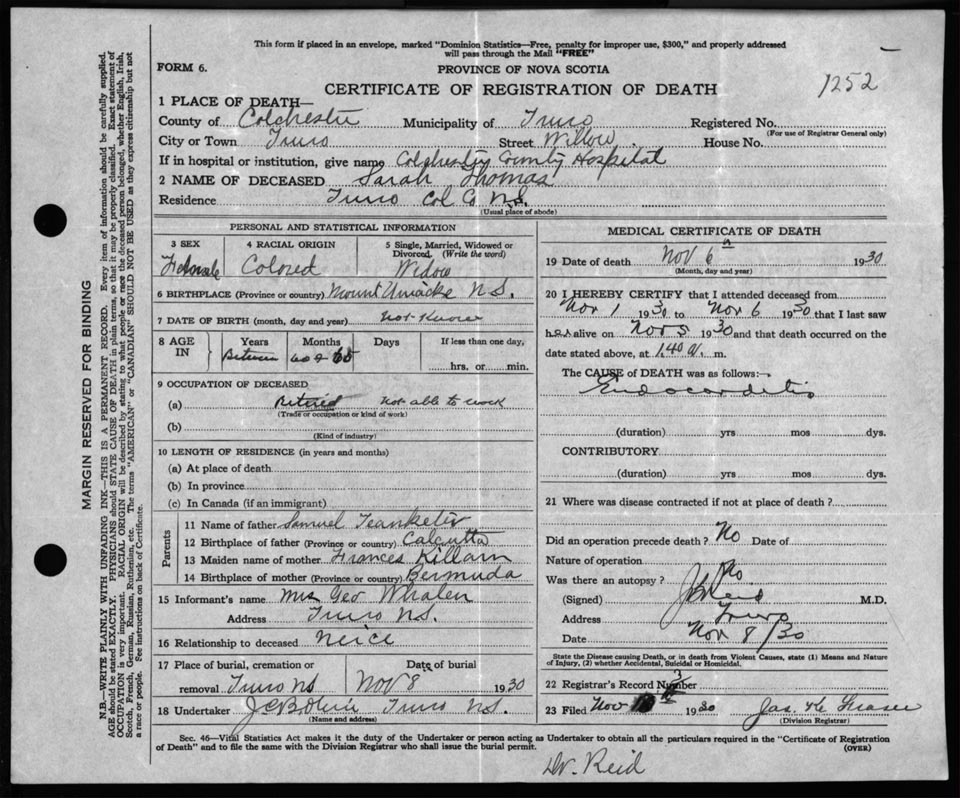 This form if placed in an envelope, marked "Dominion Statistics—Free, penalty for improper use, $300," and properly addressed
will pass through the Mail "FREE"
FORM 6.
PROVINCE OF NOVA SCOTIA
CERTIFICATE OF REGISTRATION OF DEATH
1252
1 PLACE OF DEATH—
County of Colchester Municipality of Truro Registered No.
(For use of Registrar General only)
City or Town Truro Street Willow House No.
If in hospital or institution, give name Colchester County Hospital
2 NAME OF DECEASED Sarah Thomas
Residence Truro Col Co N.S.
(Usual place of abode)
PERSONAL AND STATISTICAL INFORMATION
3 SEX 4 RACIAL ORIGIN 5 Single, Married, Widowed or
Divorced. (Write the word)
Female Colored Widow
6 BIRTHPLACE (Province or country) Mount Uniacke N.S.
7 DATE OF BIRTH (month, day and year) Not Know
8 AGE IN Years Months Days If less than one day,
Between 60 & 65 hrs. or min.
9 OCCUPATION OF DECEASED
(a) Retired Not able to work
(Trade or occupation or kind of work)
(b)
(Kind of industry)
10 LENGTH OF RESIDENCE (in years and months)
(a) At place of death
(b) In province
(c) In Canada (if an immigrant)
Parents
11 Name of father Samuel
12 Birthplace of father (Province or country) Calcutta
13 Maiden name of mother Frances Killam
14 Birthplace of mother (Province or country) Bermuda
15 Informant's name Mrs Geo Whalen
Address Truro N.S.
16 Relationship to deceased Neice
17 Place of burial, cremation or Date of burial
removal Truro NS Nov 8 1930
18 Undertaker Truro N.S.
(Name and address)
MEDICAL CERTIFICATE OF DEATH
19 Date of death Nov 6 1930
(Month, day and year)
20 I HEREBY CERTIFY that I attended deceased from
Nov 1 1930 to Nov 6 1930 that I last saw
her alive on Nov 5 1930 and that death occurred on the
date stated above, at 1.40 a. m.
The CAUSE of DEATH was as follows:—
Endocarditis
(duration) yrs mos dys.
CONTRIBUTORY
(duration) yrs mos dys.
21 Where was disease contracted if not at place of death?
Did an operation precede death? No Date of
Nature of operation
Was there an autopsy? No
(Signed) Reid M.D.
Address Truro
Date Nov 8/30
State the Disease causing Death, or in death from Violent Causes, state (1) Means and Nature
of Injury, (2) whether Accidental, Suicidal or Homicidal.
22 Registrar's Record Number 3
23 Filed Nov 1930 Jas. H Fraser
(Division Registrar)
Sec. 46—Vital Statistics Act makes it the duty of the Undertaker or person acting as Undertaker to obtain all the particulars required in the "Certificate of Registration
of Death" and to file the same with the Division Registrar who shall issue the burial permit. (OVER)
Dr. Reid
MARGIN RESERVED FOR BINDING
N.B.—WRITE PLAINLY WITH UNFADING INK—THIS IS A PERMANENT RECORD. Every item of information should be carefully supplied.
AGE should be stated EXACTLY. PHYSICIANS should STATE CAUSE OF DEATH in plain terms, so that it may be properly classified. Exact statement of
OCCUPATION is very important. RACIAL ORIGIN will be described by stating to what people or race the deceased person belonged, whether English, Irish,
Scotch, French, German, Russian, Ruthenian, etc. The terms "AMERICAN" or "CANADIAN" SHOULD NOT BE USED as they express citizenship but not
a race or people. See instructions on back of Certificate.